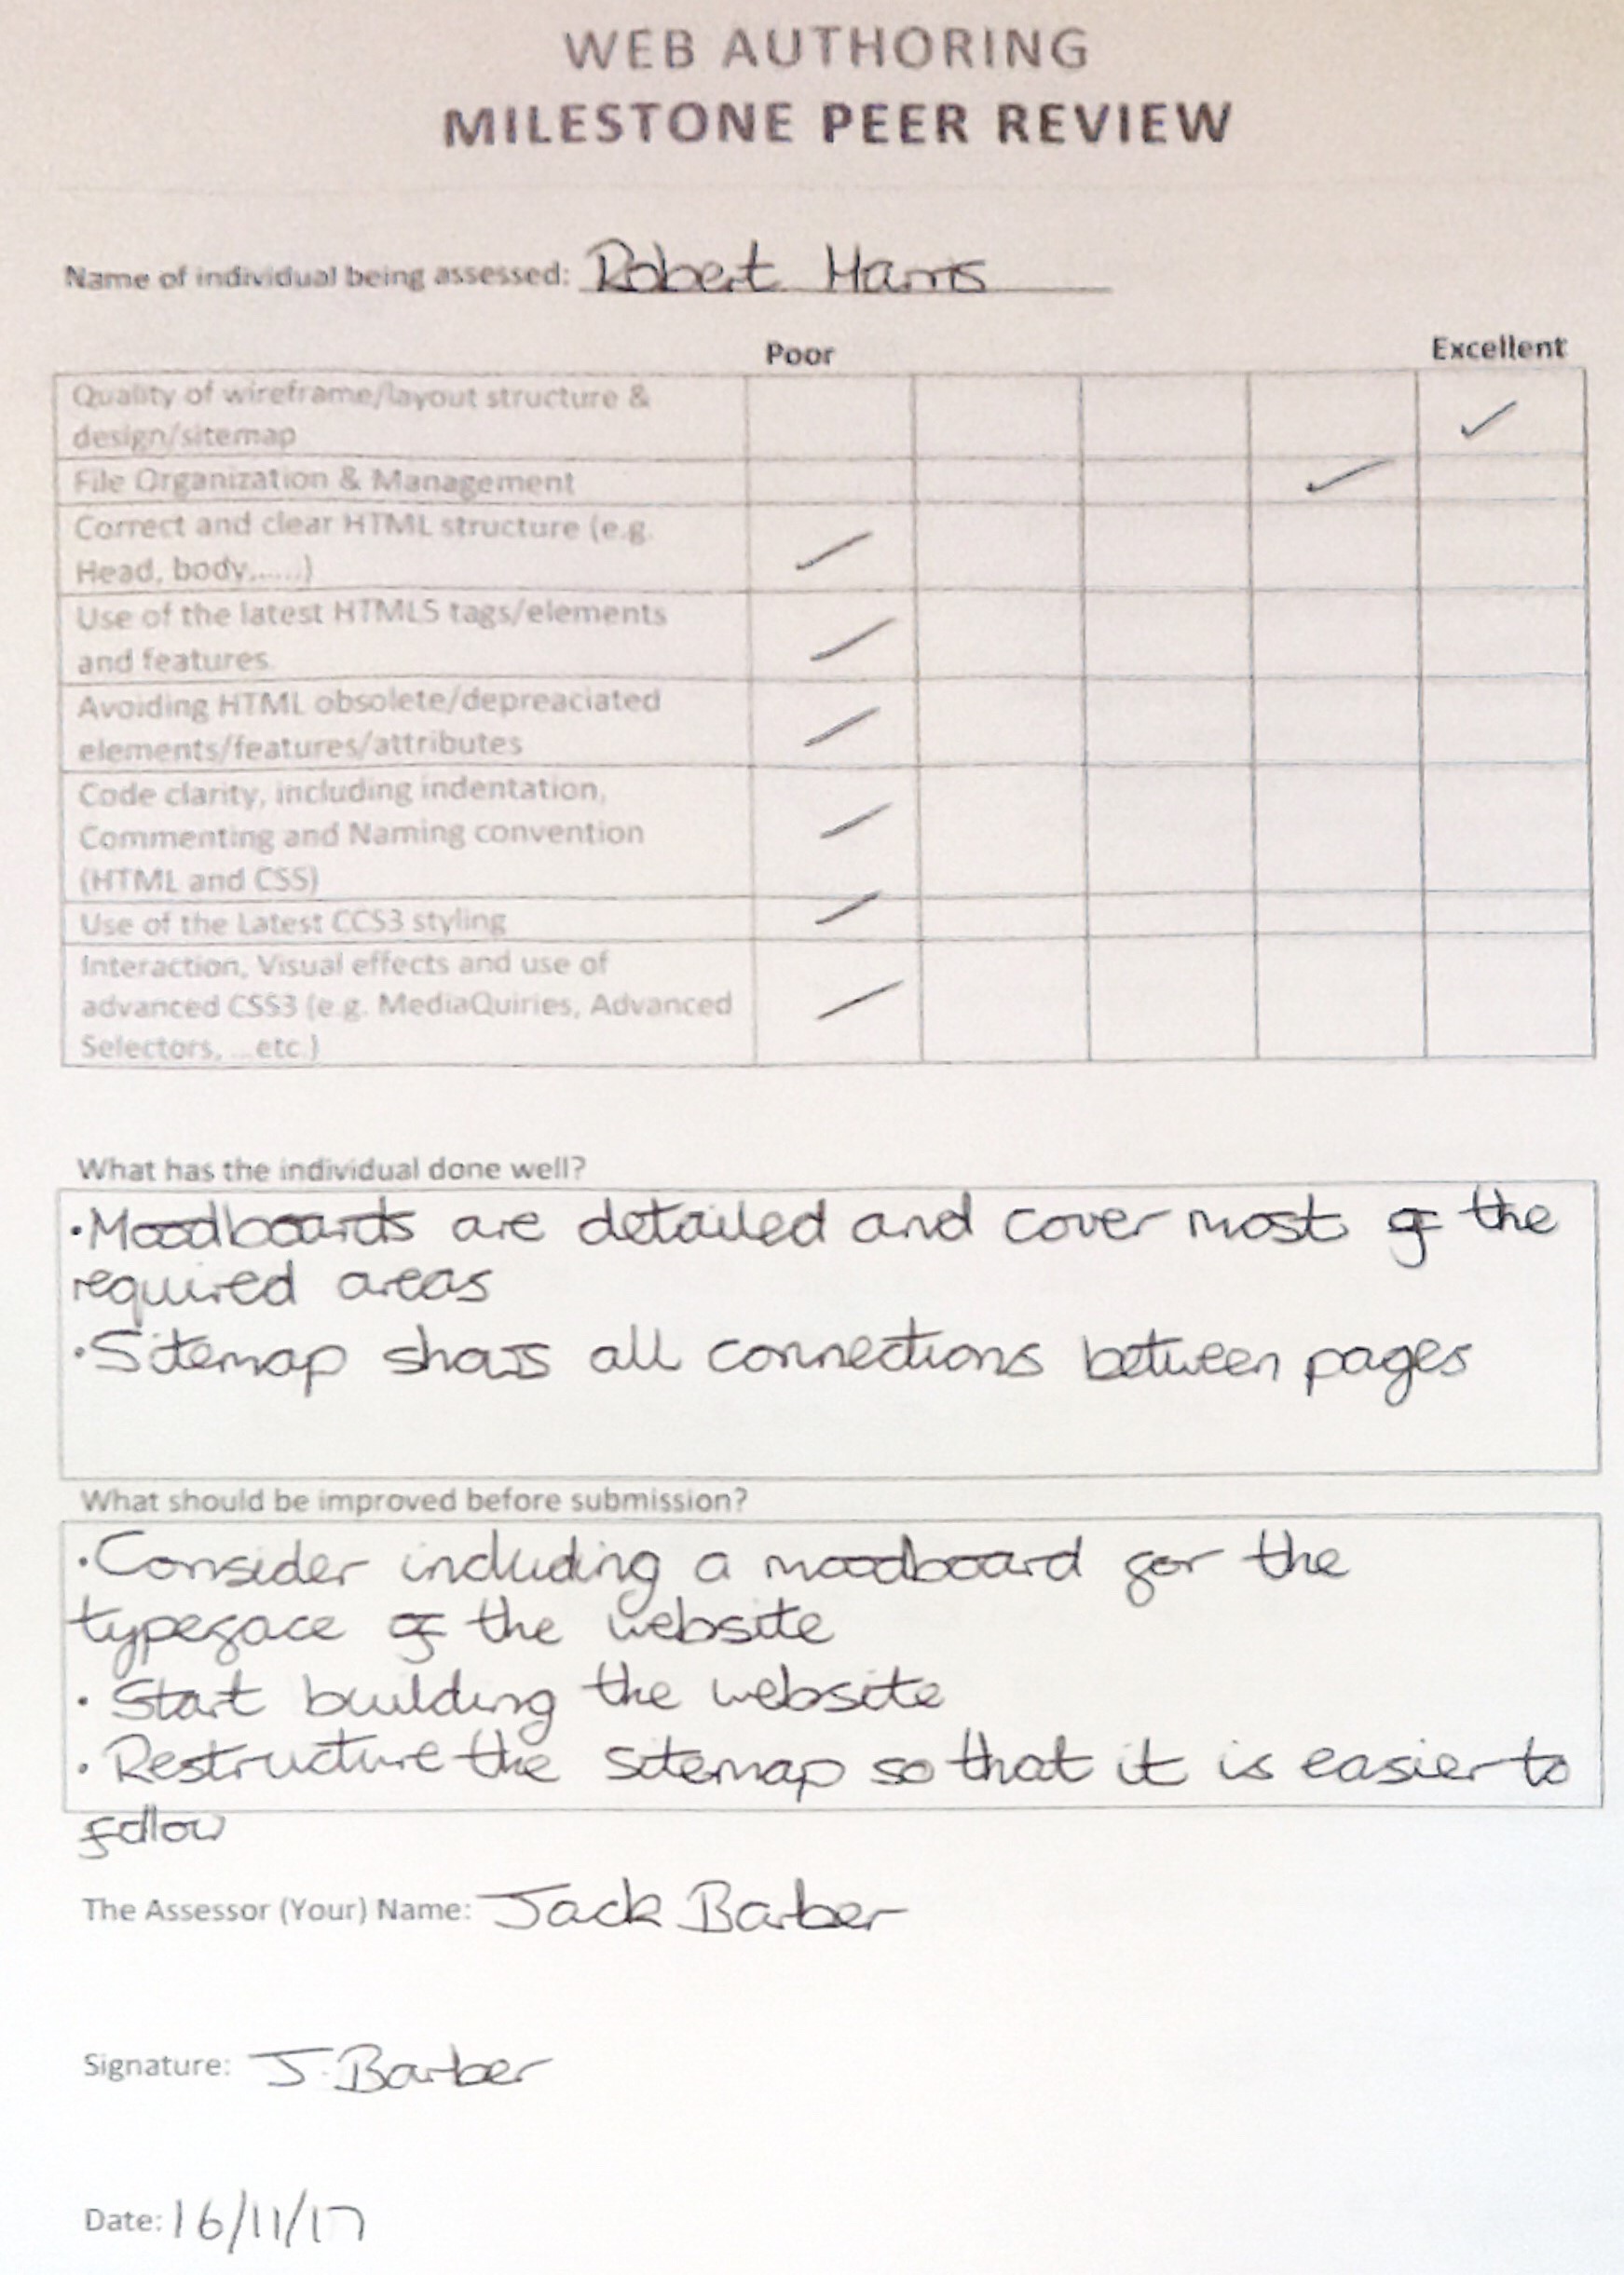 WEB AUTHORING
MILESTONE PEER REVIEW
Name of individual being assessed: Robert Harris
Poor Excellent
Quality of wireframe/layout structure &
design/sitemap ✓
File Organization & Management ✓
Correct and clear HTML structure (e.g.
Head, body,.....) ✓
Use of the latest HTML5 tags/elements
and features. ✓
Avoiding HTML obsolete/depreaciated
elements/features/attributes ✓
Code clarity, including indentation,
Commenting and Naming convention
(HTML and CSS) ✓
Use of the Latest CCS3 styling ✓
Interaction, Visual effects and use of
advanced CSS3 (e.g. MediaQuiries, Advanced
Selectors, ...etc.) ✓
What has the individual done well?
•Moodboards are detailed and cover most of the
required areas
•Sitemap shows all connections between pages
What should be improved before submission?
•Consider including a moodboard for the
typeface of the website
• Start building the website
• Restructure the sitemap so that it is easier to
follow
The Assessor (Your) Name: Jack Barber
Signature: J. Barber
Date: 16/11/17